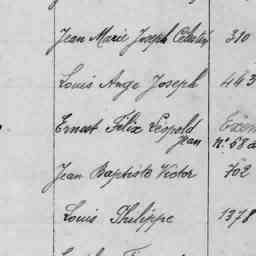 Jean Marie Joseph Célestin 310
Louis Ange Joseph 463
Ernest Félix Léopold
Jean n° 58
Jean Baptiste Victor 702
Louis Philippe 1378